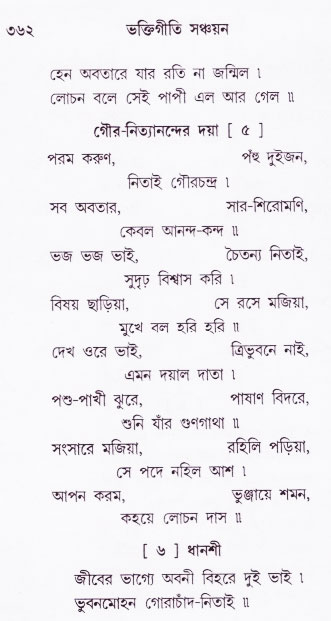 ৩৬২ ভক্তিগীতি সঞ্চয়ন
হেন অবতারে যার রতি না জন্মিল ৷
লোচন বলে সেই পাপী এল আর গেল ॥
গৌর-নিত্যানন্দের দয়া [ ৫ ]
পরম করুণ, পঁহু দুইজন,
নিতাই গৌরচন্দ্র ৷
সব অবতার, সার-শিরোমণি,
কেবল আনন্দ-কন্দ ॥
ভজ ভজ ভাই, চৈতন্য নিতাই,
সুদৃঢ় বিশ্বাস করি ৷
বিষয় ছাড়িয়া, সে রসে মজিয়া,
মুখে বল হরি হরি ॥
দেখ ওরে ভাই, ত্রিভুবনে নাই,
এমন দয়াল দাতা ৷
পশু-পাখী ঝুরে, পাষাণ বিদরে,
শুনি যাঁর গুণগাথা ॥
সংসারে মজিয়া, রহিলি পড়িয়া,
সে পদে নহিল আশ ৷
আপন করম, ভুঞ্জায়ে শমন,
কহয়ে লোচন দাস ॥
[ ৬ ] ধানশী
জীবের ভাগ্যে অবনী বিহরে দুই ভাই ৷
ভুবনমোহন গোরাচাঁদ-নিতাই ॥